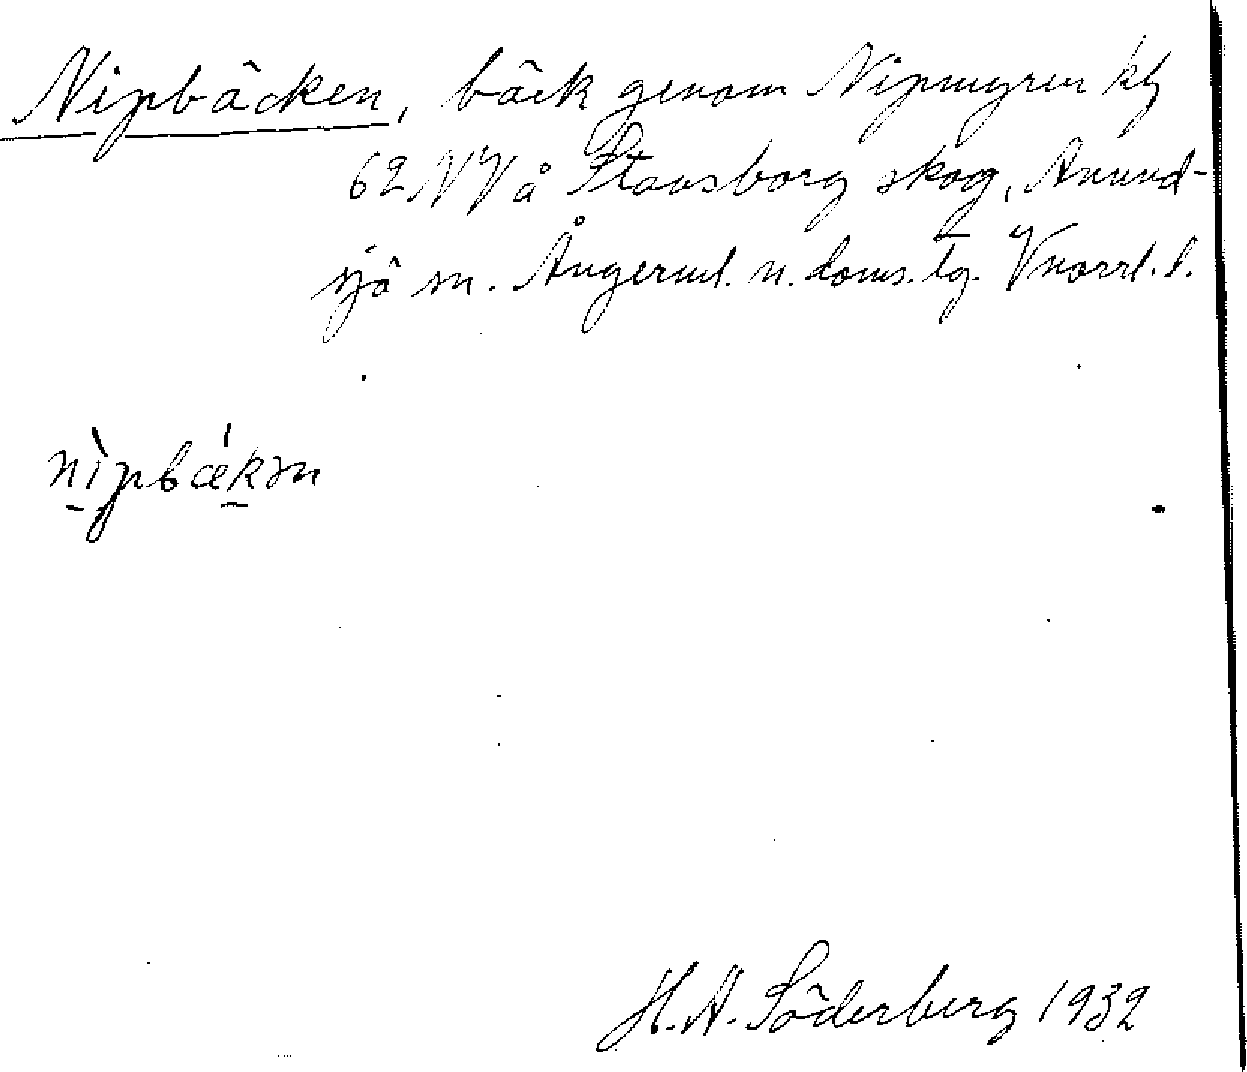 Nipbäcken, bäck genom Nipmyren kbl
62 NV å Stavsborg skog, Anund-
sjö sn. Ångerml. n. doms. tg. Vnorrl. l.
nìpbǽkən
H. A. Söderberg 1932